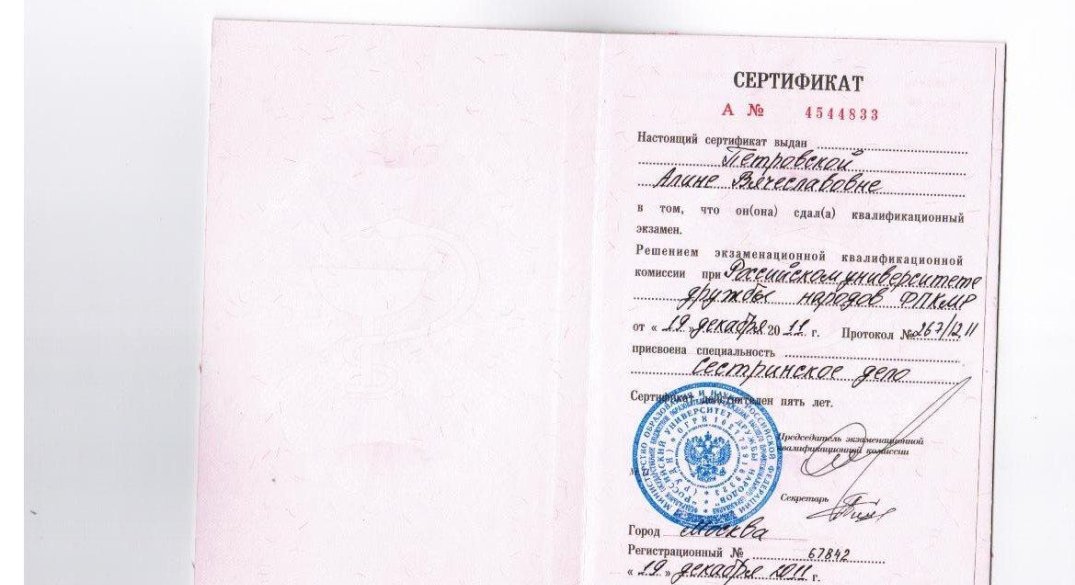 СЕРТИФИКАТ
А № 4544833
Настоящий сертификат выдан
Петровской
Алине Вячеславовне
в том, что он(она) сдал(а) квалификационный
экзамен.
Решением экзаменационной квалификационной
комиссии при Российском университете
дружбы народов ФПКМР
от « 19 » декабря 2011 г. Протокол № 267/12 11
присвоена специальность
Сестринское дело
Сертификат действителен пять лет.
МИНИСТЕРСТВО ОБРАЗОВАНИЯ И НАУКИ РОССИЙСКОЙ ФЕДЕРАЦИИ
"РОССИЙСКИЙ УНИВЕРСИТЕТ ДРУЖБЫ НАРОДОВ"
(РУДН)
Председатель экзаменационной
квалификационной комиссии
Секретарь
Город Москва
Регистрационный № 67842
« 19 » декабря 2011 г.